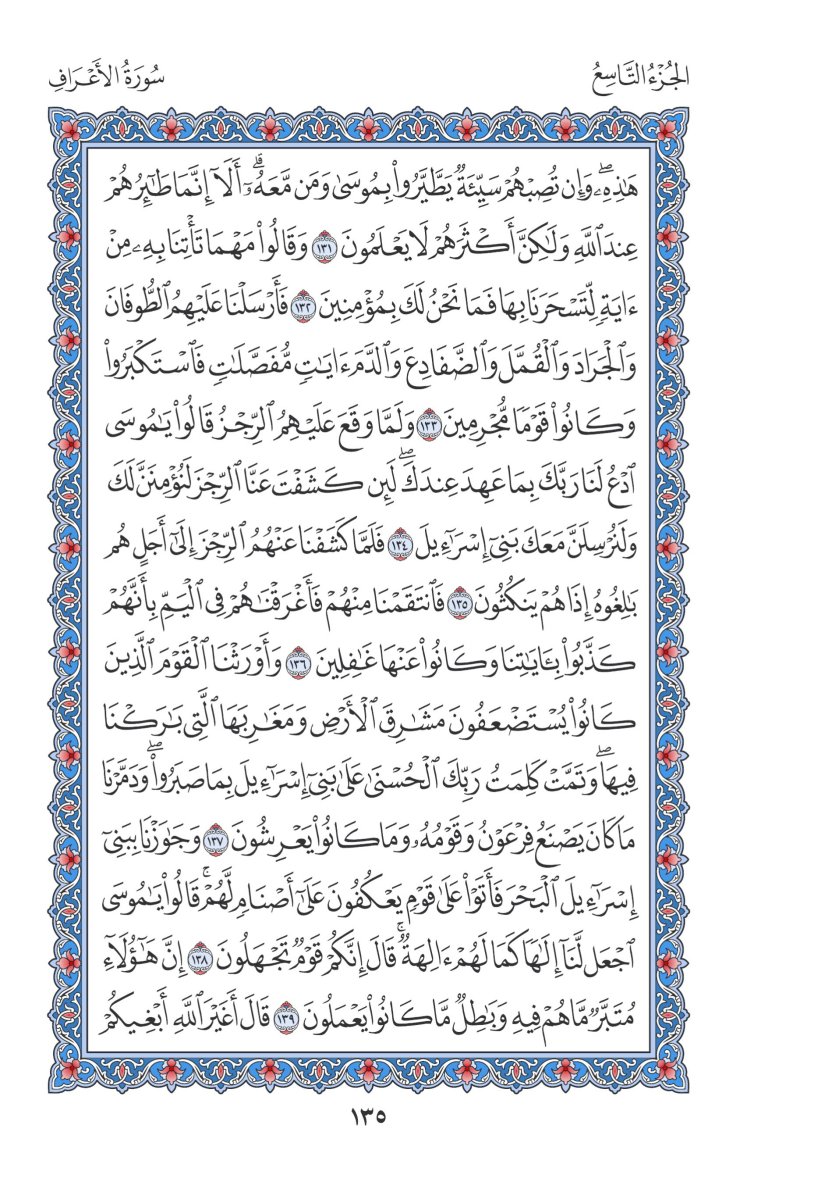 الجُزْءُ التَّاسِعُ
سُورَةُ الأَعْرَافِ
هَٰذِهِۦۖ وَإِن تُصِبْهُمْ سَيِّئَةٌ يَطَّيَّرُوا۟ بِمُوسَىٰ وَمَن مَّعَهُۥٓۗ أَلَآ إِنَّمَا طَٰٓئِرُهُمْ
عِندَ ٱللَّهِ وَلَٰكِنَّ أَكْثَرَهُمْ لَا يَعْلَمُونَ ١٣١ وَقَالُوا۟ مَهْمَا تَأْتِنَا بِهِۦ مِنْ
ءَايَةٍ لِّتَسْحَرَنَا بِهَا فَمَا نَحْنُ لَكَ بِمُؤْمِنِينَ ١٣٢ فَأَرْسَلْنَا عَلَيْهِمُ ٱلطُّوفَانَ
وَٱلْجَرَادَ وَٱلْقُمَّلَ وَٱلضَّفَادِعَ وَٱلدَّمَ ءَايَٰتٍ مُّفَصَّلَٰتٍ فَٱسْتَكْبَرُوا۟
وَكَانُوا۟ قَوْمًا مُّجْرِمِينَ ١٣٣ وَلَمَّا وَقَعَ عَلَيْهِمُ ٱلرِّجْزُ قَالُوا۟ يَٰمُوسَى
ٱدْعُ لَنَا رَبَّكَ بِمَا عَهِدَ عِندَكَۖ لَئِن كَشَفْتَ عَنَّا ٱلرِّجْزَ لَنُؤْمِنَنَّ لَكَ
وَلَنُرْسِلَنَّ مَعَكَ بَنِىٓ إِسْرَٰٓءِيلَ ١٣٤ فَلَمَّا كَشَفْنَا عَنْهُمُ ٱلرِّجْزَ إِلَىٰٓ أَجَلٍ هُم
بَٰلِغُوهُ إِذَا هُمْ يَنكُثُونَ ١٣٥ فَٱنتَقَمْنَا مِنْهُمْ فَأَغْرَقْنَٰهُمْ فِى ٱلْيَمِّ بِأَنَّهُمْ
كَذَّبُوا۟ بِـَٔايَٰتِنَا وَكَانُوا۟ عَنْهَا غَٰفِلِينَ ١٣٦ وَأَوْرَثْنَا ٱلْقَوْمَ ٱلَّذِينَ
كَانُوا۟ يُسْتَضْعَفُونَ مَشَٰرِقَ ٱلْأَرْضِ وَمَغَٰرِبَهَا ٱلَّتِى بَٰرَكْنَا
فِيهَاۖ وَتَمَّتْ كَلِمَتُ رَبِّكَ ٱلْحُسْنَىٰ عَلَىٰ بَنِىٓ إِسْرَٰٓءِيلَ بِمَا صَبَرُوا۟ۖ وَدَمَّرْنَا
مَا كَانَ يَصْنَعُ فِرْعَوْنُ وَقَوْمُهُۥ وَمَا كَانُوا۟ يَعْرِشُونَ ١٣٧ وَجَٰوَزْنَا بِبَنِىٓ
إِسْرَٰٓءِيلَ ٱلْبَحْرَ فَأَتَوْا۟ عَلَىٰ قَوْمٍ يَعْكُفُونَ عَلَىٰٓ أَصْنَامٍ لَّهُمْۚ قَالُوا۟ يَٰمُوسَى
ٱجْعَل لَّنَآ إِلَٰهًا كَمَا لَهُمْ ءَالِهَةٌۚ قَالَ إِنَّكُمْ قَوْمٌ تَجْهَلُونَ ١٣٨ إِنَّ هَٰٓؤُلَآءِ
مُتَبَّرٌ مَّا هُمْ فِيهِ وَبَٰطِلٌ مَّا كَانُوا۟ يَعْمَلُونَ ١٣٩ قَالَ أَغَيْرَ ٱللَّهِ أَبْغِيكُمْ
١٣٥